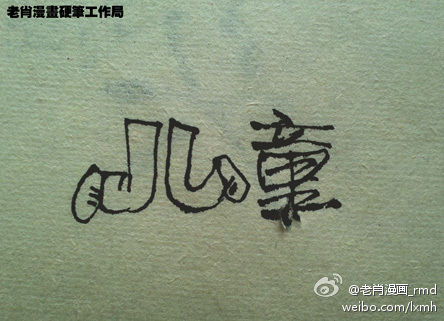 老肖漫畫硬筆工作局
儿童
@老肖漫画_rmd
weibo.com/lxmh